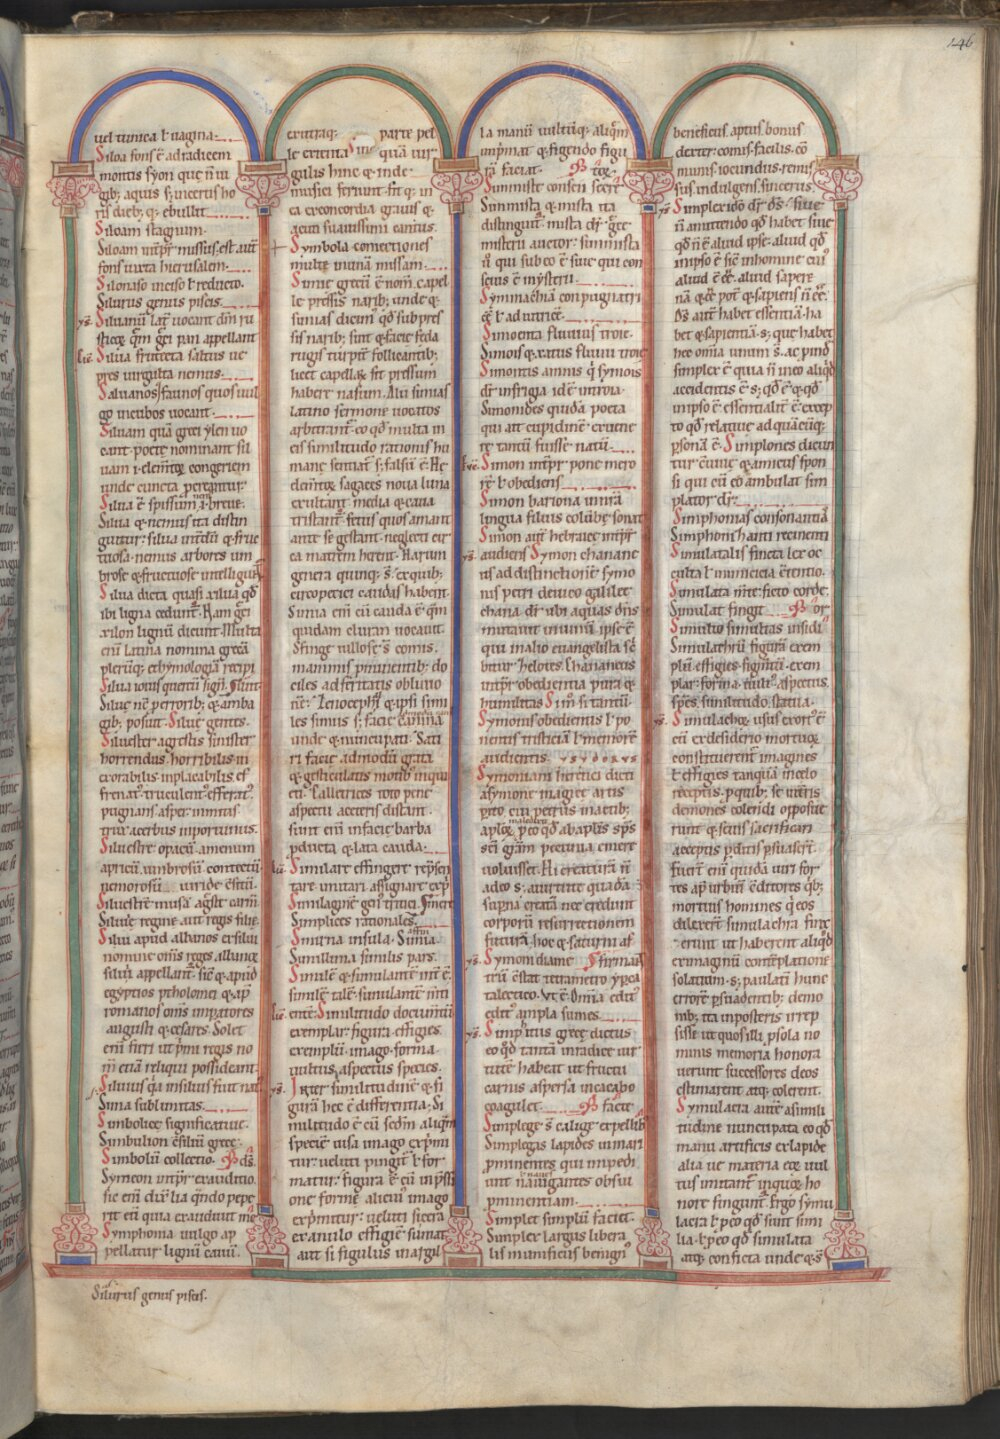 146
uel tunica ł uagina.
Siloa fons ē ad radicem
montis syon que n̄ iu
gib; aquis s; incertis ho
ris dieb; q; ebullit
Siloam stagnum.
Siloam int̄pr̄ missus. est aut̄
fons iuxta hierusalem.
Silonaso inciso ł reducto.
Silurus genus piscis.
Siluanū lat̄ uocant dm̄ ru
sticoꝝ qm̄ gr̄ci pan appellant
Siluia fruteeta saltus ue
pres uirgulta nemus.
Saluanos faunos quos uul
go incubos uocant.
Siluam quā greci ylen uo
cant. poete nominant sil
uam i. elem̄toꝝ congeriem
unde cuncta
Silua ē spissum breue.
Silua q nemus ita distin
guitur. silua
tuosa. nemus arbores um
brose
Silua dicta quasi xilua qđ
ibi ligna cedunt. Nam gr̄ci
xilon lignū dicunt. Multa
eni latina nomina grecā
plerūq; ethymologiā recipi
Silua iouis quercū sign̄.
Silue nē
gib; posuit. Silue gentes.
Siluester agrestis sinister
horrendus. horribilis in
exorabilis. inplacabilis ef
frenat truculent efferat
pugnans. asper. inmitis.
trux. acerbus inportunus.
Siluestre. opacū. amenum
apricū. umbrosū. contectū
nemorosū uiride
Siluestrē musā agr̄stē carm̄
Siluie regine aut regis filie.
Siluii apud albanos ex siluii
nomine om̄s reges. albanoꝝ
siluii appellant. sic̄ q apud
egyptios ptholomei q ap̄
romanos om̄s imp̄atores
augusti q cesares. Solet
eni fieri ut p̄mi regis no
m̄ etiā reliqui possideant.
Siluius
Sima sublimitas.
Simbolice significatiue.
Simbulion c̄siliū grece.
Simbolū collectio.
Symeon int̄pr̄ exauditio.
sic eni dix̄ lia qn̄do pepe
rit eū quia exaudiuit me
Symphonia uulgo ap
pellatur lignū cauū.
Silurus genus piscis.
ex utraq; parte pel
le extenta quā uir
gulis hinc q inde
musici feriunt. fit q; in
ea ex concordia grauis q
acuti suauissimi cantus.
Symbola. contectiones
multe in unā missam.
Simie grecū ē nom̄ capel
le pressis narib; unde q
simias dicim̄ qđ sub pres
sis narib; sunt q facie feda
rugis turpit̄ follicantib;
licet capellaꝝ sit pressum
habere nasum. Alii simias
latino sermone uocatos
arbitrant̄ eo qđ multa in
eis similitudo rationis hu
mane sentiat̄ s; falsū ē. He
elem̄toꝝ sagaces noua luna
exultant. media q caua
tristant̄. fetus quos amant
ante se gestant. neglecti cir
ca matrem herent. Harum
genera quinq; s̄. ex quib;
circopetici caudas habent.
Simia eni cū cauda ē qm̄
quidam cluran uocant.
Sfinge uillose s̄ comis.
mammis p̄minentib; do
ciles ad feritatis obliuio
nē. Cenocephli q ipsi simi
les simiis s; facie canina
unde q nuncupati. Sati
ri facie admodū grata
q gesticulatis motib; inqui
eti. Callitrices toto pene
aspectu a ceteris distant.
sunt eni in facie barba
p̄ducta q lata cauda.
Similare effingere rep̄sen
tare. imitari. assignare
Similagine
Simplices rationales.
Simirna insula. Simia.
Simillima similis pars.
Similē q simulantē
similē. talē. simulantē
Similitudo documtū
exemplar. figura. effigies.
exemplū. imago. forma.
uultus. aspectus. species.
Inter similitudinē q fi
gurā hec ē differentia. Si
militudo ē cū scdm̄ aliqm̄
specie uisa imago exp̄mi
tur. ueluti pingit̄ ł for
matur. figura ē cū inpssi
one forme alicui imago
exp̄mitur. ueluti si cera
ex anulo effigiē sumat
aut si figulus in argil
la manū uultūq; aliqm̄
imp̄mat q figendo figu
rā faciat.
Simmiste consen secr̄t
Simmista q mista ita
distinguit̄. mista dr̄. grece
misterii auctor. simmista
n̄ qui sub eo ē siue qui con
scius ē mysterii.
Symmachiā conpugnatri
cē ł adiutricē.
Simoenta fluuius troie.
Simois q xatus fluuii troie
Simoentis amnis q symois
dr̄ in frigia id ē in troia.
Simonides quidā poeta
qui ait cupidinē
re tantū fuisse natū.
Simon int̄pr̄ pone mero
rē ł obediens
Simon bariona
lingua filius colūbe sonat
Simon aut̄ hebraice int̄pr̄
audiens Symon chanane
us ad distinctionē symo
nis petri de uico galilee
chana dr̄ ubi aquas dn̄s
mutauit in uinū. ipse ē
qui in alio euangelista sc̄
bitur zelotes. Chananeus
int̄pr̄ obedientia pura q
humilitas
Symonis obedientis ł po
nentis tristiciā ł memorē
audientis.
Symoniani heretici dicti
a symone magice artis
p̄ito cui petrus maledixit
aplos p eo qđ ab aplis sp̄s
sc̄i gr̄am pecunia emere
uoluisset. Hi creaturā n̄
a deo s; a uirtute quadā
sup̄na creatā nec credunt
corporū resurrectionem
futurā,
Symondiame
trū
talectico. Vt ē. Om̄ia edit̄
edit̄ ampla sumes
Simpitus grece dictus
eo qđ tantā in radice uir
tutē habeat ut fructū
carnis aspersa in cacabo
coagulet.
Simplege s̄ calige expellib;
Simplegas lapides in mari
p̄minentes qui impedi
unt nauigantes obsui
p̄minentiam.
Simplet simplū faciet.
Simplex largus libera
lis munificus benign̄
beneficus. aptus. bonus
dexter. comis. facilis. cō
munis. iocundus. remis
sus. indulgens. sincerus.
Simplex ido dr̄ ds̄. siue
n̄ amittendo qđ habet. siue
qđ n̄ ē aliud ipse. aliud qđ
in ipso ē sic̄ in homine cui
aliud ē eē. aliud sapere
nā q eē pot̄ q sapiens n̄ eē.
Ds̄ aut̄ habet essentiā. ha
bet q sapientiā. s; que habet
hec om̄ia unum s̄. ac pind̄
simplex ē quia n̄ in eo aliqđ
accidentis ē. s; qđ ē q qđ
in ipso ē essentialit̄ ē. excep
to qđ relatiue ad quācūq;
p̄sonā ē. Simplones dicun
tur
si qui cū eo ambulat sim
plator dr̄.
Simphonias consonantiā
Simphoniaci
Simulatalis
culta ł
Simulata mente. ficto corde.
Simulat fingit.
Simultio simultas insidi
Simulachrū figurā exem
plū. effigies. figm̄tū. exem
plar. forma. uult. aspectus.
sp̄es. similitudo. statua.
Simulachoꝝ usus exort̄ ē
cū ex desiderio mortuoꝝ
constituerent̄ imagines
ł effigies tanquā in celo
receptis. p quib; se in t̄ris
demones colendi opposue
runt q
acceptis p̄ditis p̄suaser̄.
Fuer̄t eni quidā uiri for
tes ap̄ urbiū c̄ditores qb;
mortuis homines qi eos
dilexer̄t simulachra finx
erunt ut haberent aliqđ
ex imaginū contēplatione
solatium. s; paulati hunc
errorē p̄suadentib; demo
nib; ita in posteris irrep
sisse ut quos illi p sola no
minis memoria honora
uerunt successores deos
estimarent atq; colerent.
Symulacra aut̄ a simili
tudine nuncupata eo qđ
manu artificis ex lapide
alia ue materia eoꝝ uul
tus imitant̄ in quoꝝ ho
nore fingunt̄. Ergo symu
lacra ł p eo qđ sunt simi
lia. ł p eo qđ simulata
atq; conficta unde q s̄